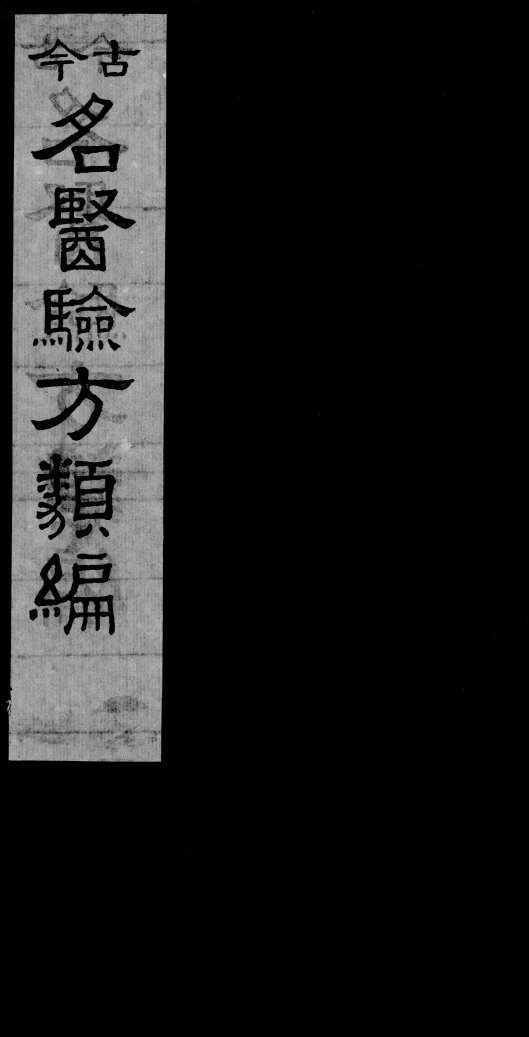 古今
名醫驗方類編